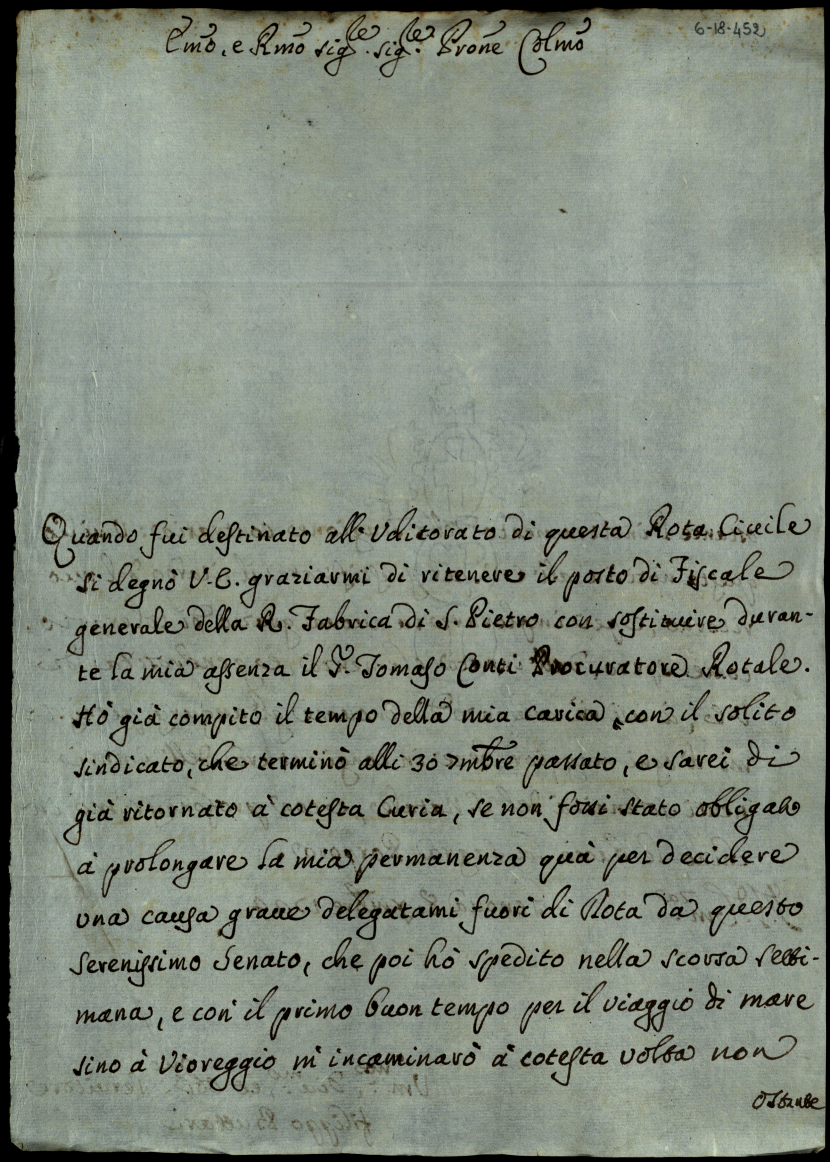 6-18-452
Emo, e Rmo Sigle. Sigle. Prone Colmo
Quando fui destinato all'Uditorato di questa Rota Civile
si degnò V.E. graziarmi di ritenere il posto di Fiscale
generale della R. Fabrica di S. Pietro con sostituire duran-
te la mia assenza il Sr. Tomaso Conti Procuratore Rotale.
Hò già compito il tempo della mia carica con il solito
sindicato, che terminò alli 30 7mbre passato, e sarei di
già ritornato à cotesta Curia, se non fossi stato obligato
à prolongare la mia permanenza quà per decidere
una causa grave delegatami fuori di Rota da questo
Serenissimo Senato, che poi hò spedito nella scorsa setti-
mana, e con il primo buon tempo per il viaggio di mare
sino à Vioreggio m'incaminarò à cotesta volta non
ostante